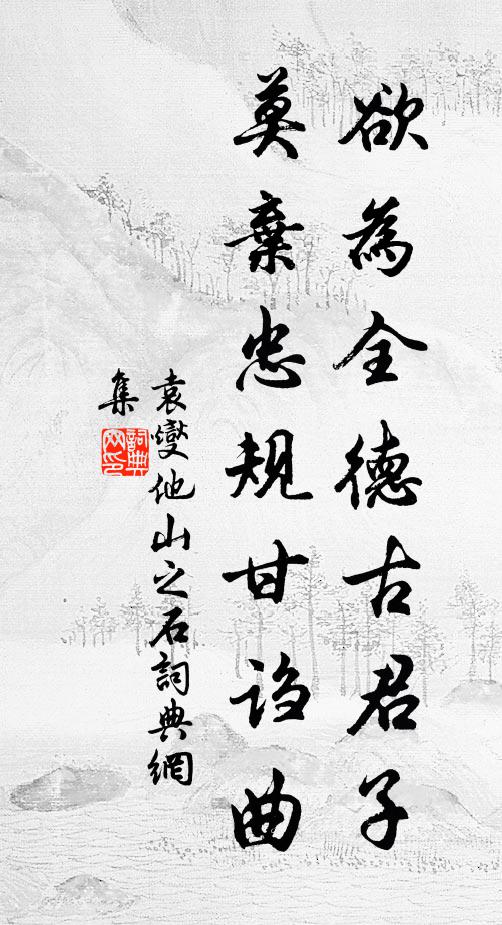 欲為全德古君子
莫棄忠规甘谄曲
袁燮他山之石詞典網
集
詞典
网印